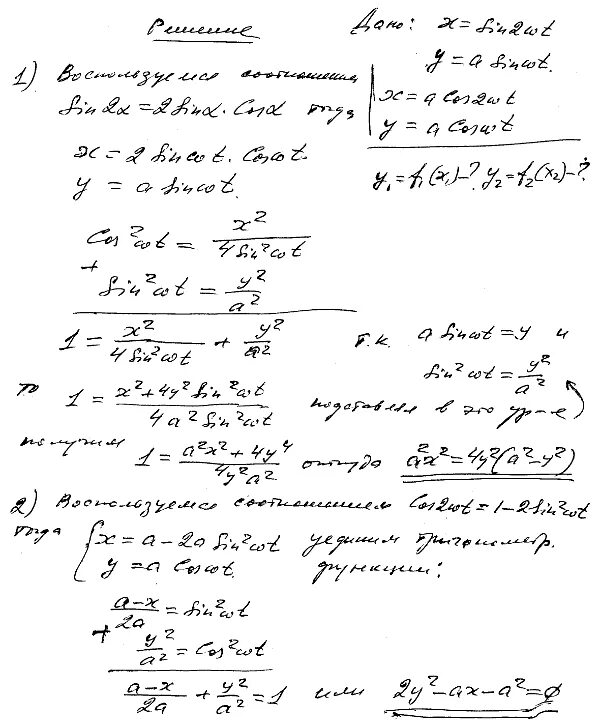 Решение
Дано: x = Sin2ωt
y = a Sinωt.
x = a Cos2ωt
y = a Cosωt
y₁ = f₁(x₁) - ? y₂ = f₂(x₂) - ?
1) Воспользуемся соотношением
Sin2α = 2Sinα · Cosα тогда
x = 2 Sinωt · Cosωt.
y = a Sinωt.
Cos²ωt = x² / 4Sin²ωt
+
Sin²ωt = y² / a²
1 = x² / 4Sin²ωt + y² / a²
т.к. a Sinωt = y и
Sin²ωt = y² / a²
то 1 = x² + 4y² Sin²ωt / 4a² Sin²ωt подставляя в это ур-е
получим 1 = a²x² + 4y⁴ / 4y²a² откуда a²x² = 4y²(a² - y²)
2) Воспользуемся соотношением Cos2ωt = 1 - 2Sin²ωt
тогда { x = a - 2a Sin²ωt уединим тригонометр.
y = a Cosωt. функции:
a - x / 2a = Sin²ωt
+
y² / a² = Cos²ωt
a - x / 2a + y² / a² = 1 или 2y² - ax - a² = 0